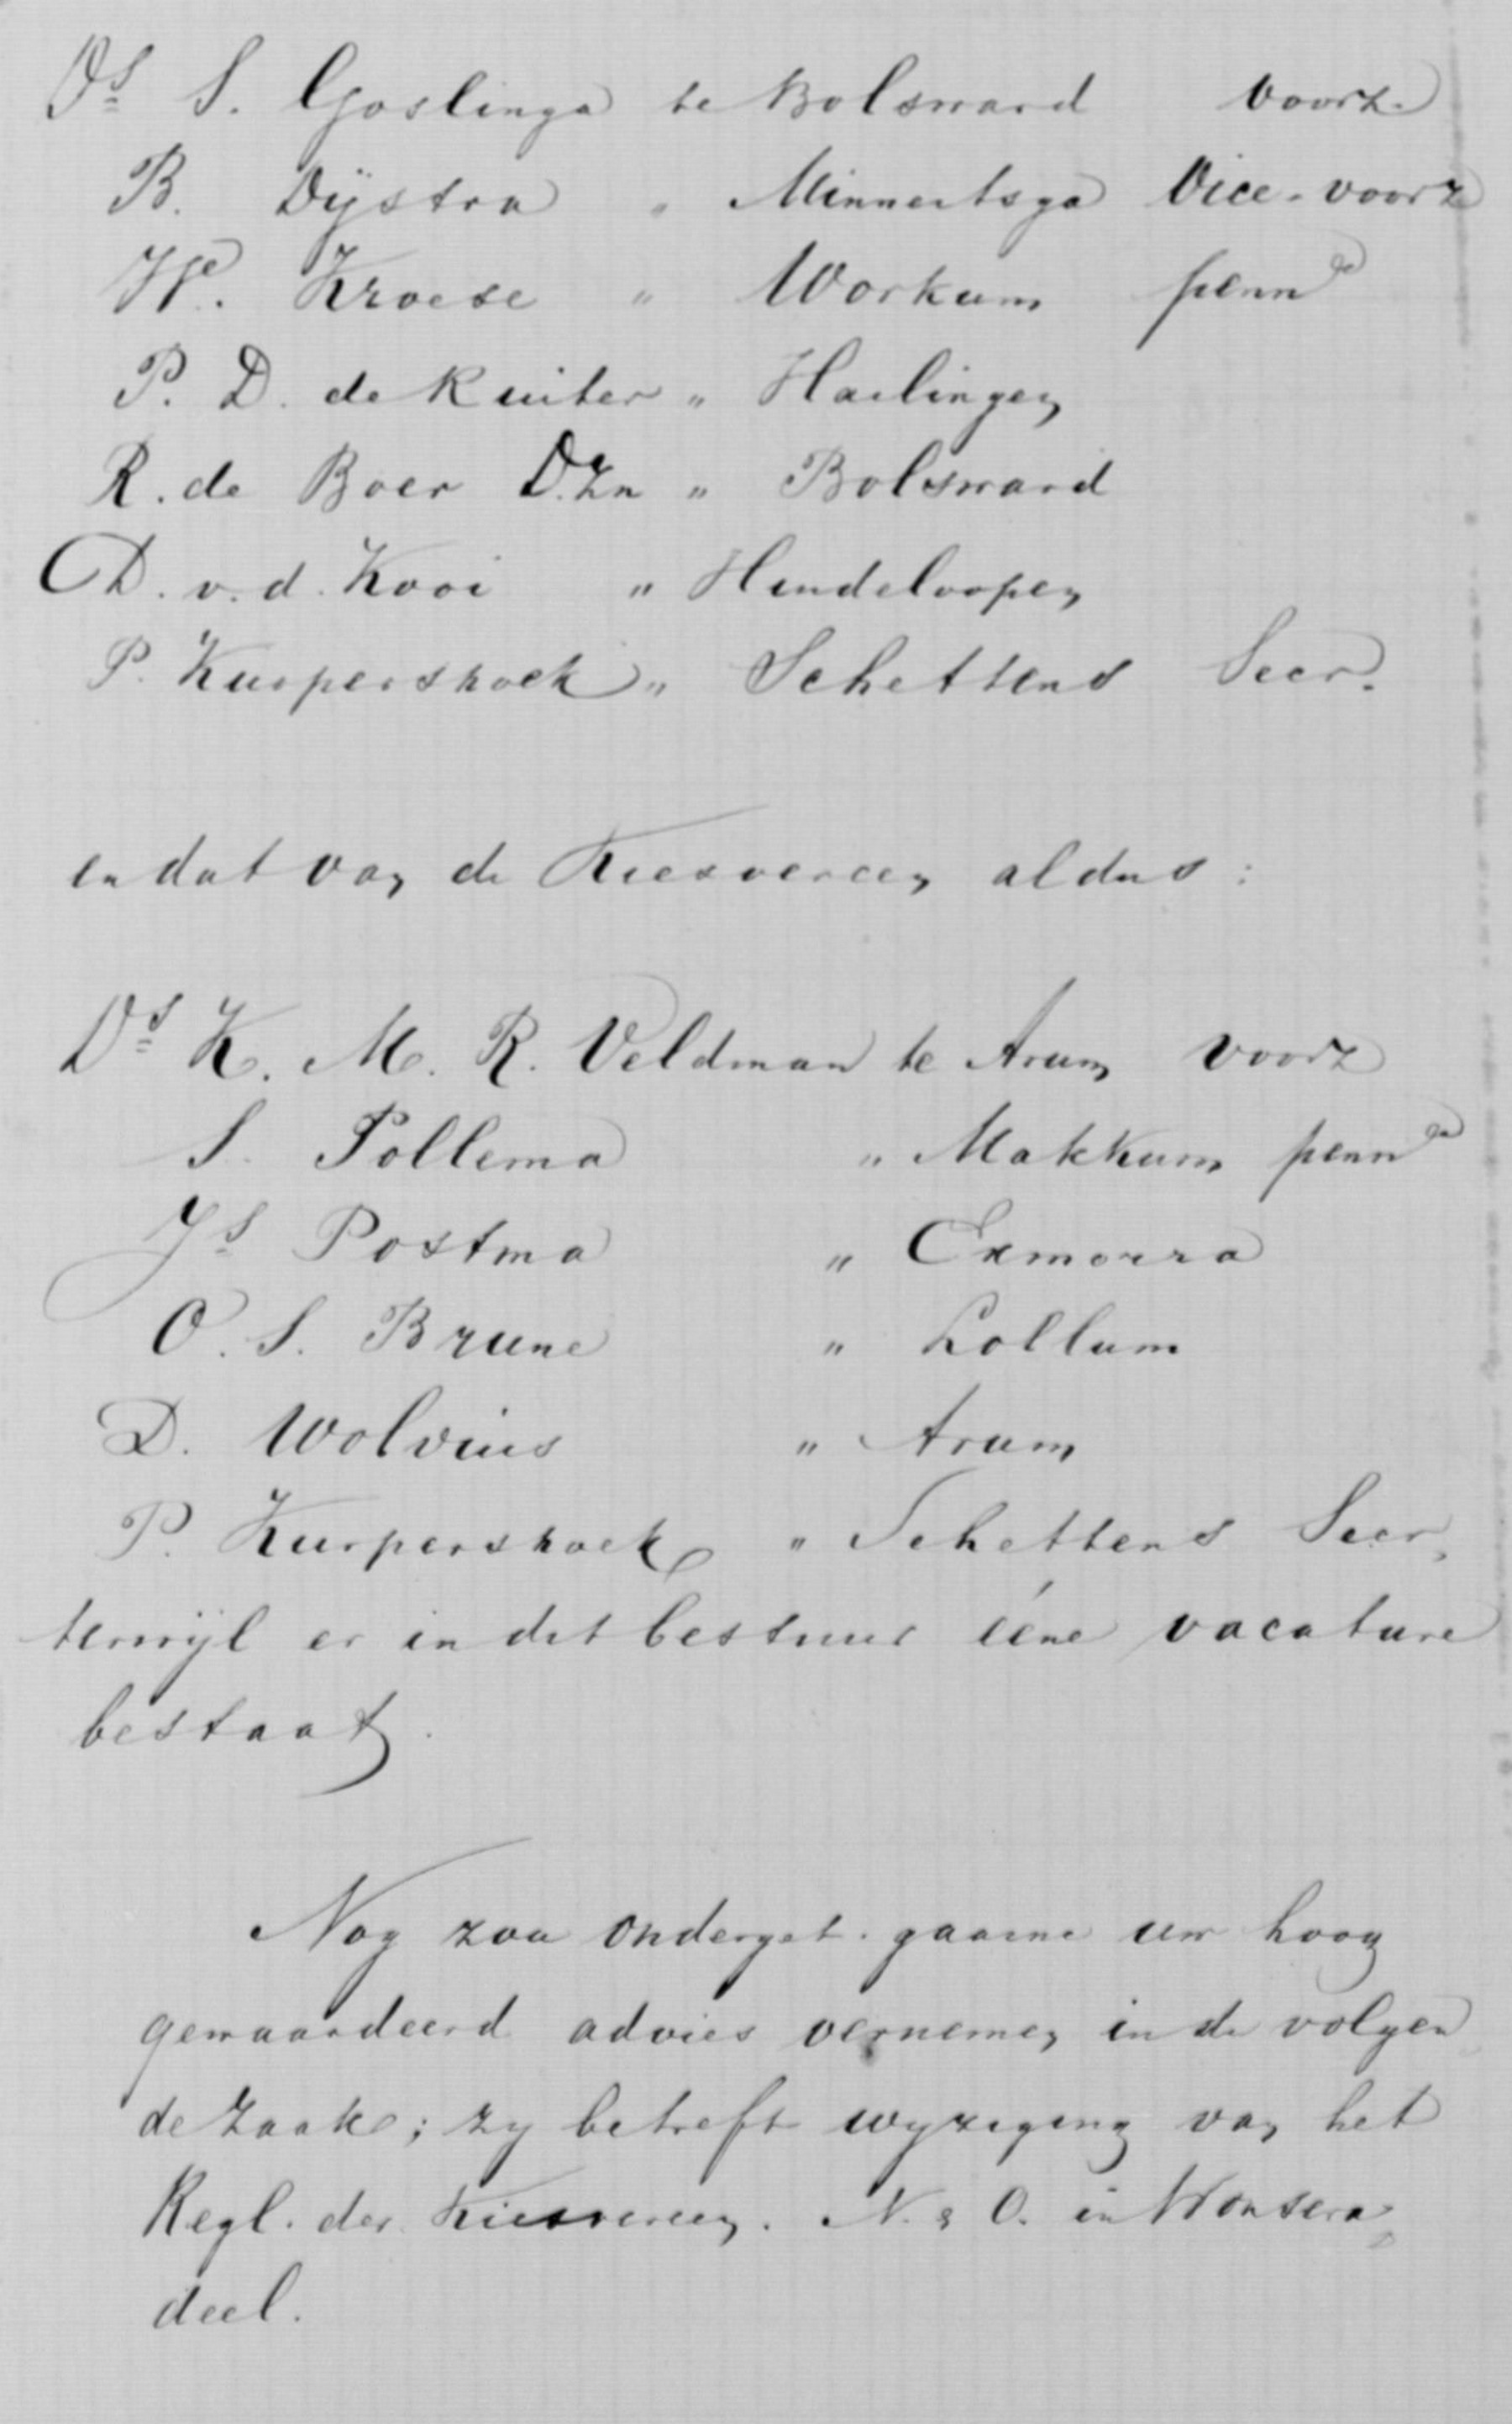 Ds S. Goslinga te Bolsward voorz.
B. Dijstra " Minnertsga Vice-voorz
We. Kroese " Workum pennr
P. D. de Ruiter " Harlingen
R. de Boer D.Zn " Bolsward
D. v. d. Kooi " Hindeloopen
P. Kuipershoek " Schettens Secr.
en dat van de Kiesvereen aldus :
Ds K. M. R. Veldman te Arum voorz
S. Pollema " Makkum pennr
Js Postma " Exmorra
O. S. Brune " Lollum
D. Wolvius " Arum
P. Kuipershoek " Schettens Secr,
terwijl er in dit bestuur ééne vacature
bestaat.
Nog zou onderget. gaarne uw hoog
gewaardeerd advies vernemen in de volgen
de zaak; zy betreft wyziging van het
Regl. der Kiesvereen. N. & O. in Wonsera
deel.